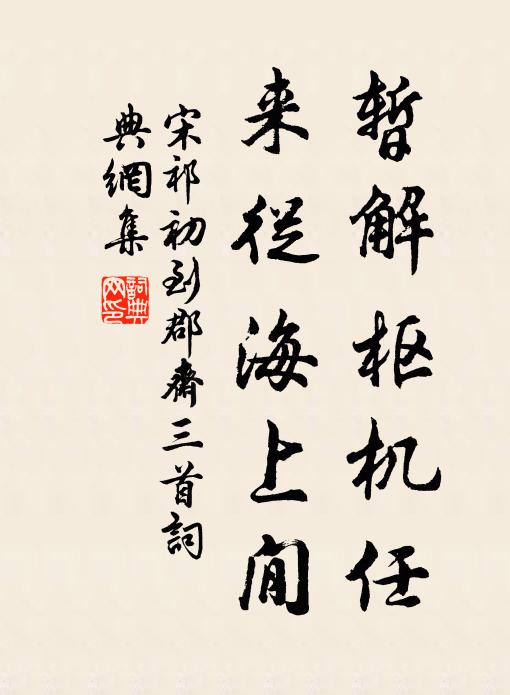 暂解枢机任
来从海上闲
宋祁初到郡斋三首词
典網集
詞典
网印